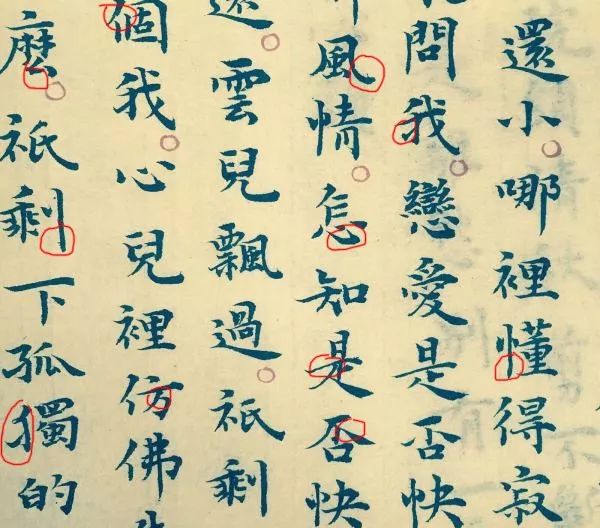 還小。哪裡懂得寂
問我。戀愛是否快
風情。怎知是否快
。雲兒飄過。祇剩
個我。心兒裡彷佛
麼。祇剩下孤獨的